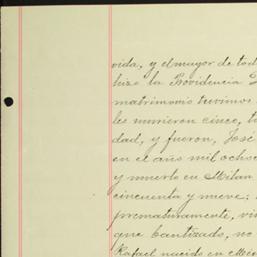 vida, y el mayor de tod
hizo la Providencia
matrimonio tuvimos
les murieron cinco, t
dad, y fueron, José
en el año mil ochoc
y muerto en Milan
cincuenta y nueve;
prematuramente, vi
que bautizado, no
Rafael nacido en Méx